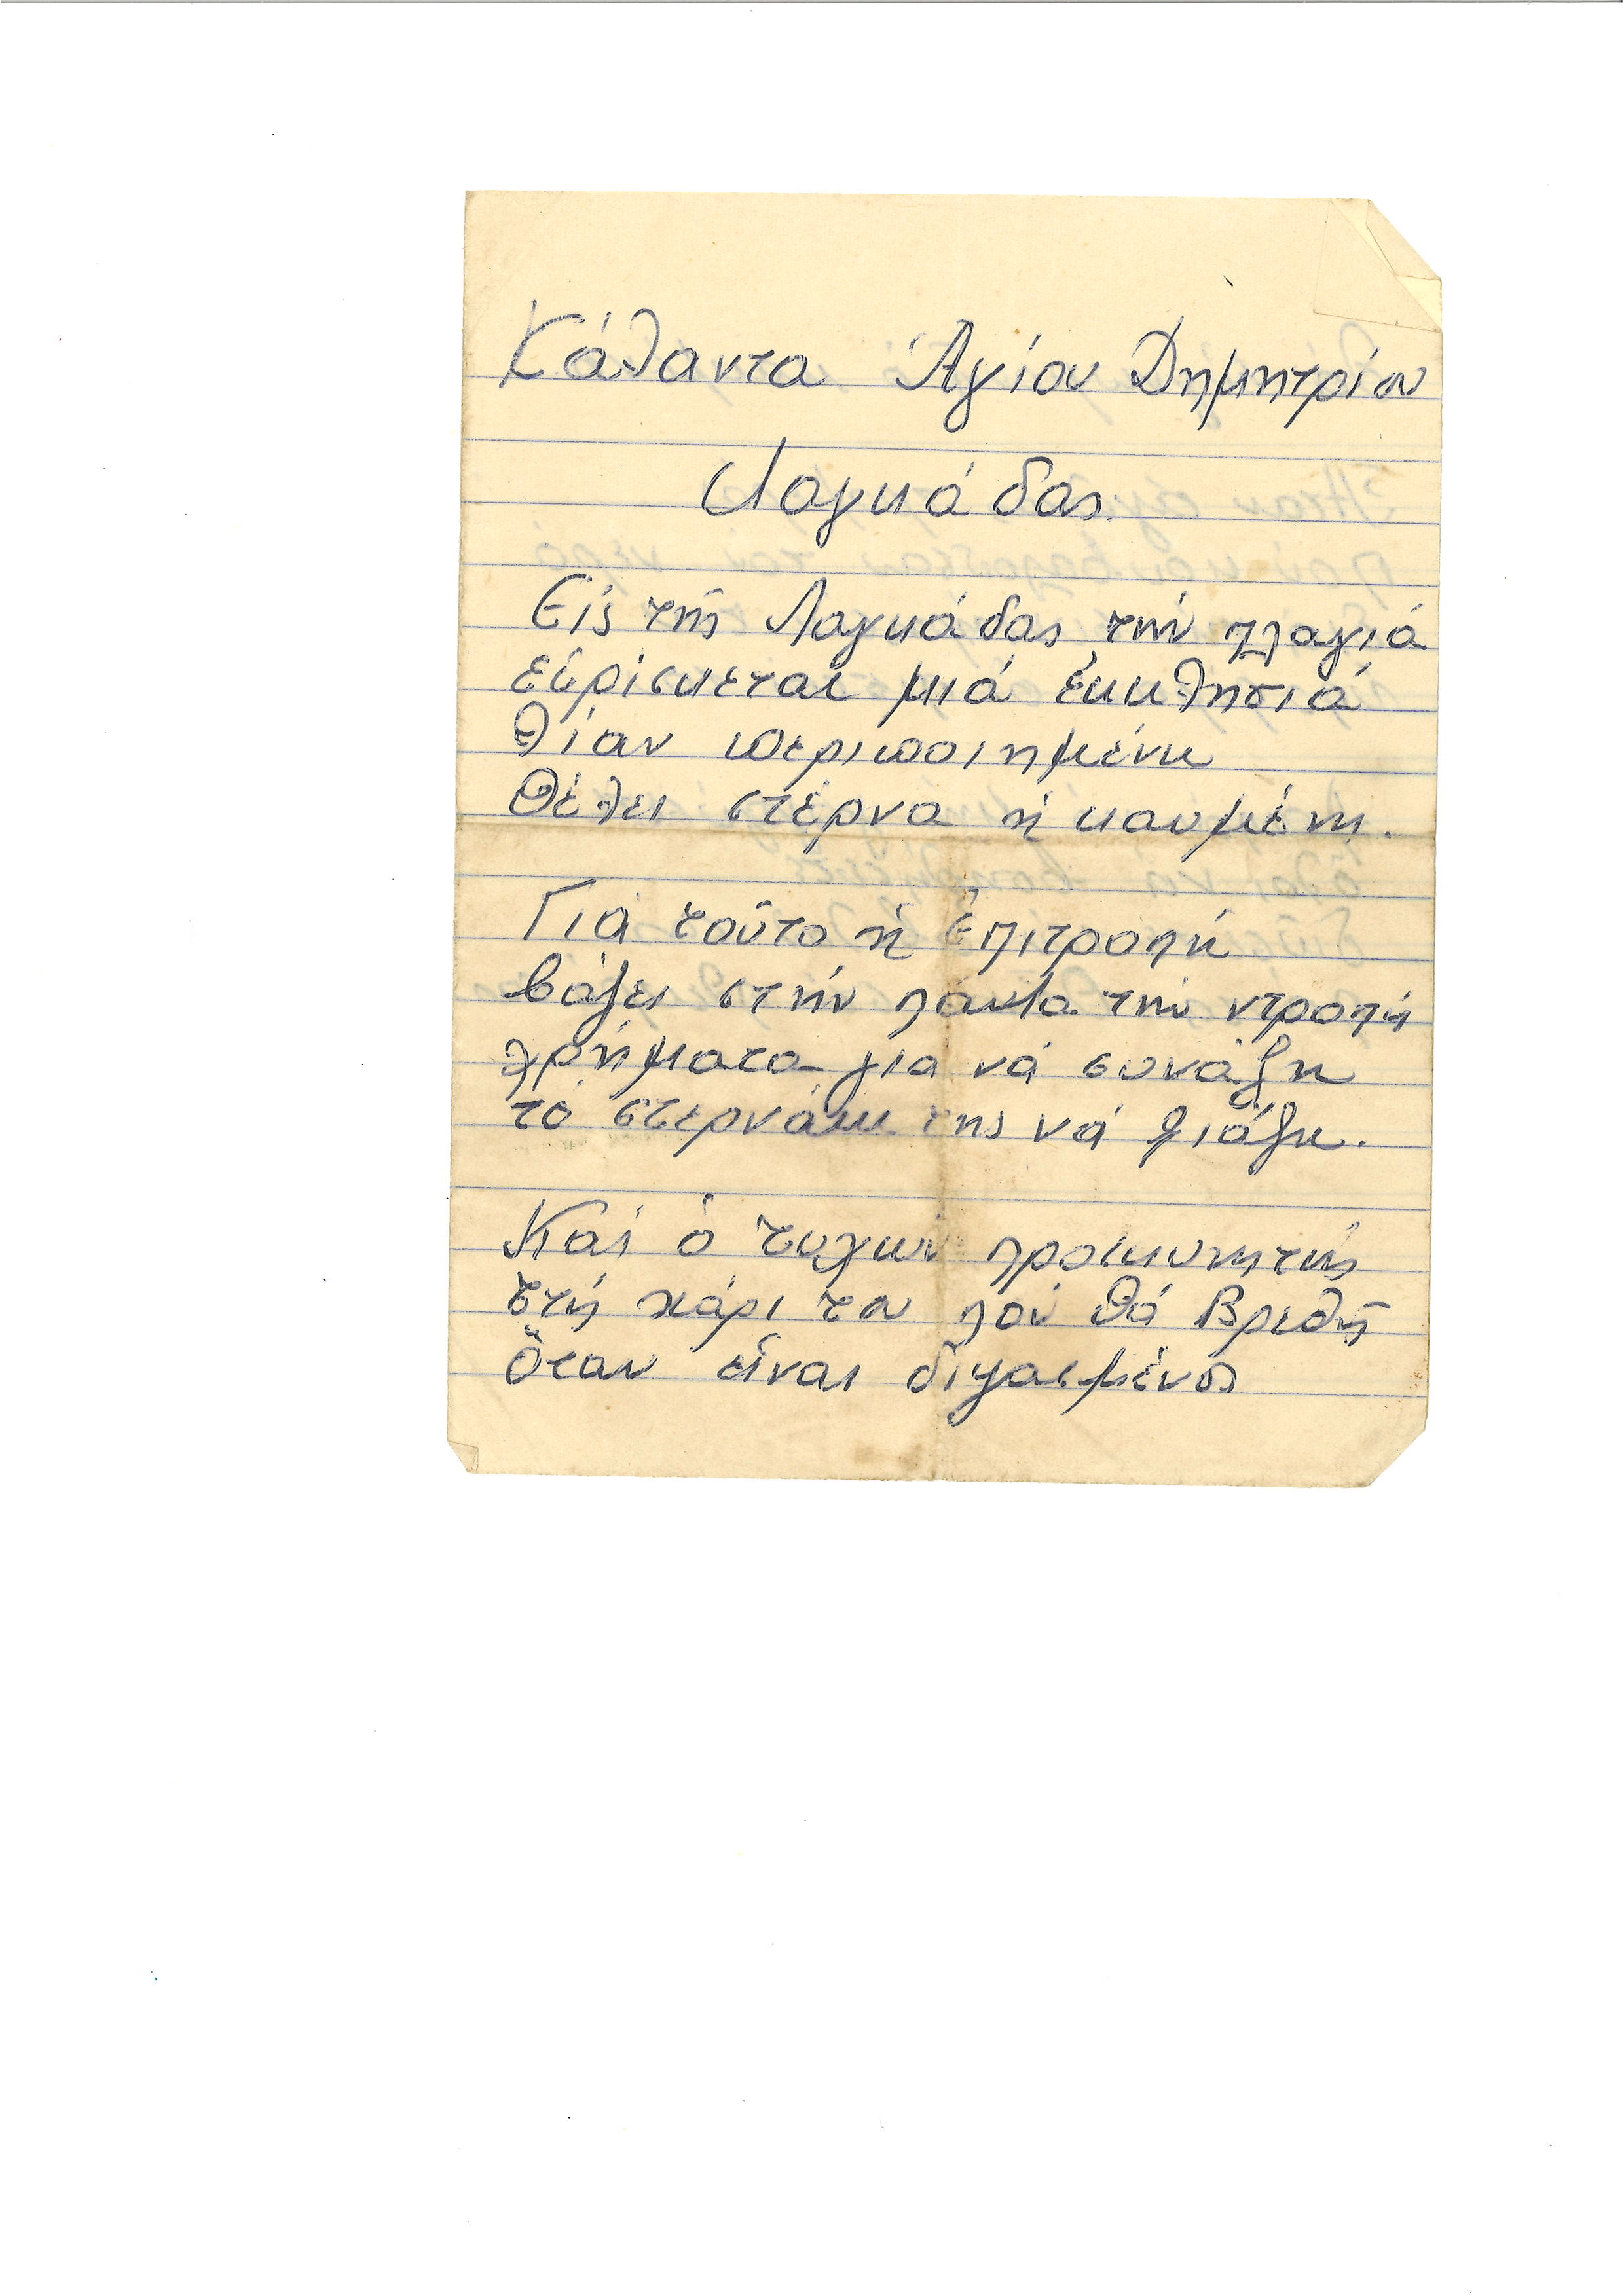 Κάλαντα Ἁγίου Δημητρίου
Λαγκάδας
Εἰς τῆς Λαγκάδας τήν πλαγιά
εὑρίσκεται μιά ἐκκλησιά
λίαν περιποιημένη
Θέλει στέρνα ἡ καυμένη.
Γιά τοῦτο ἡ Ἐπιτροπή
βάζει στήν πάντα τήν ντροπή
χρήματα για νά συνάξη
τό στερνάκι της νά φιάξη.
Καί ὁ τυχών προσκυνητής
στή χάρι του πού θά βρεθῆ
Ὅταν εἶναι διψασμένος